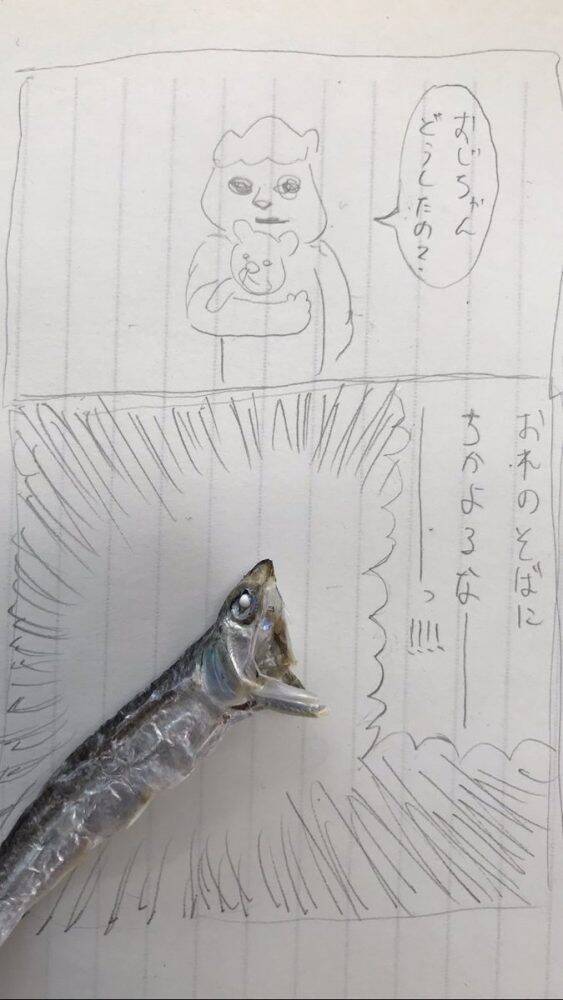 おじちゃん
どうしたの?
おれのそばに
ちかよるな――
――っ!!!!